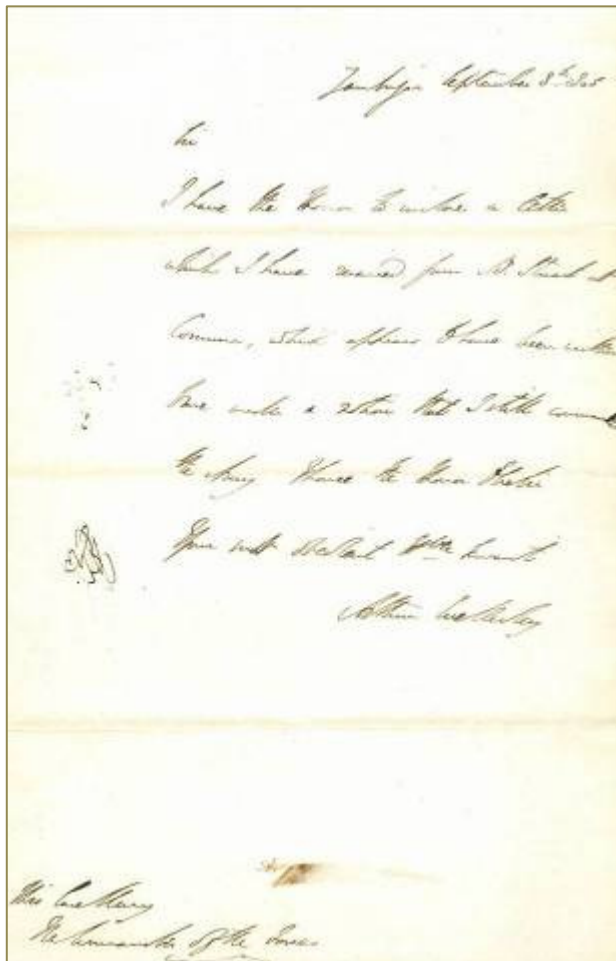 Zambujal September 8th 1808
Sir
I have the Honor to inclose a letter
which I have received from Mr. Stuart at
Corunna, which appears to have been written
under a notion that I still command
the Army I have the Honor to be
Your most obedient Hble Servant
Arthur Wellesley
His Excellency
The Commander of the Forces